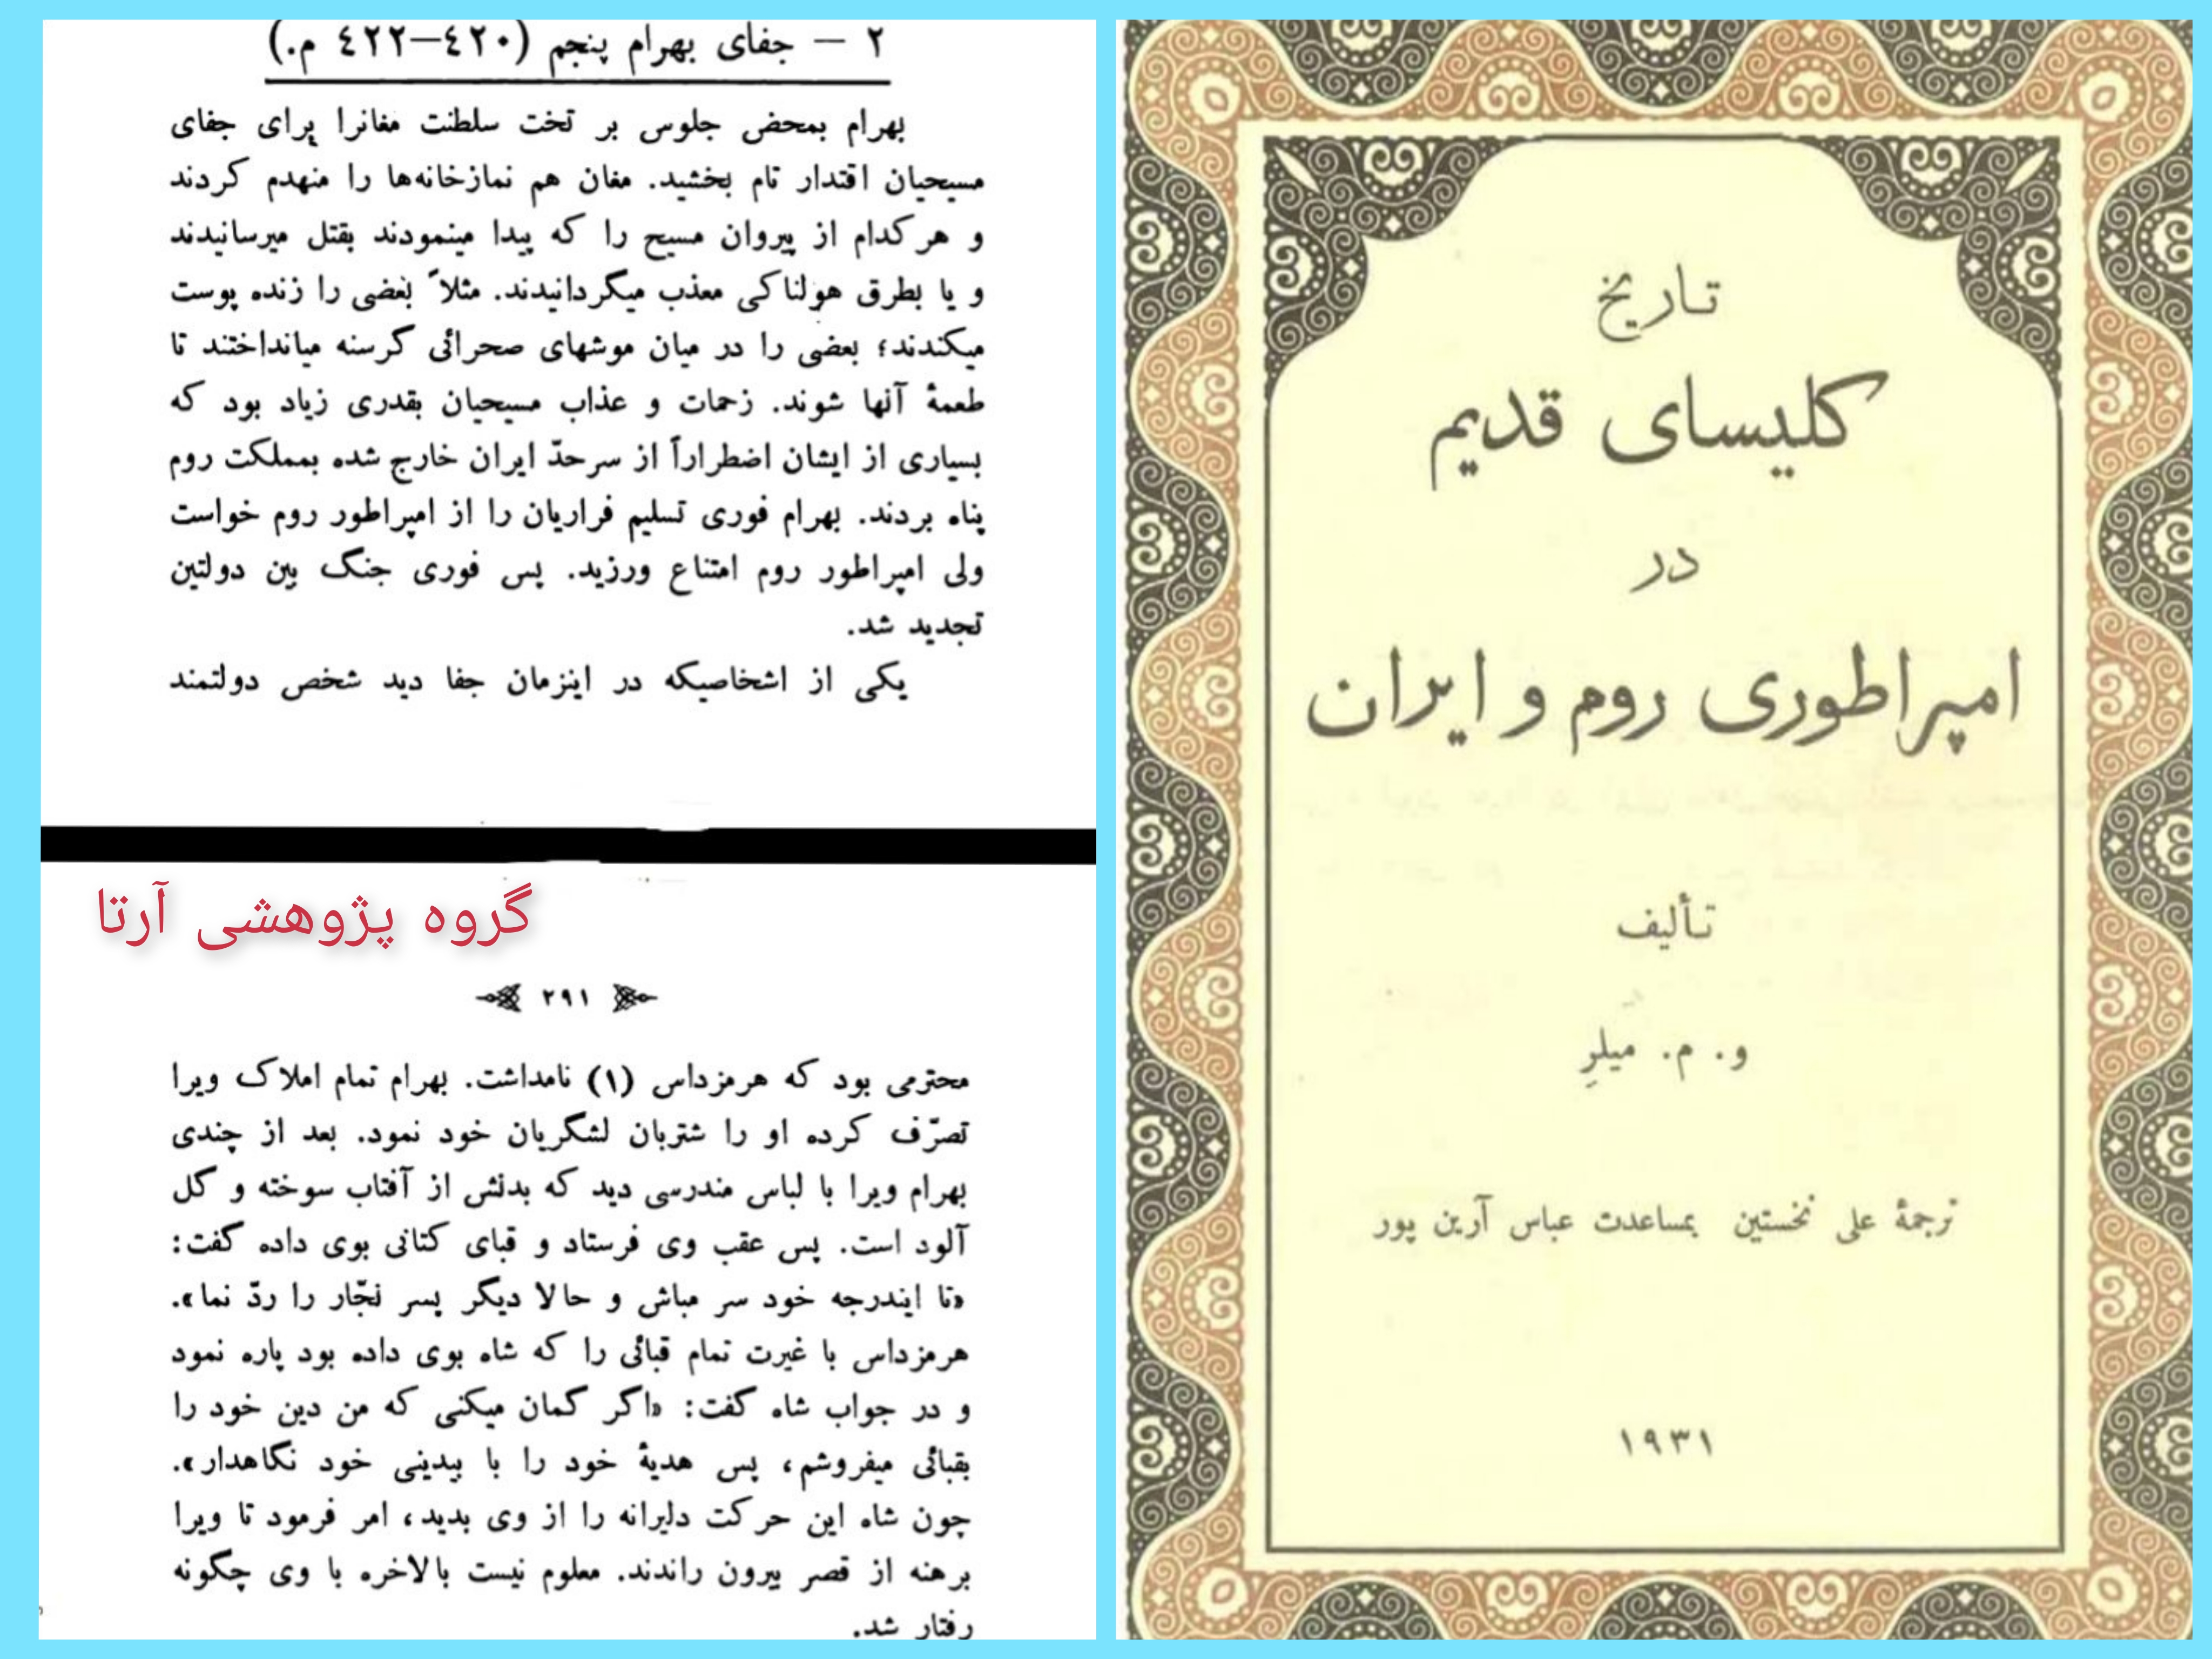 ۲ – جفای بهرام پنجم (٤۲۰–٤۲۲ م.)
بهرام بمحض جلوس بر تخت سلطنت مغانرا برای جفای
مسیحیان اقتدار تام بخشید. مغان هم نمازخانه‌ها را منهدم کردند
و هر کدام از پیروان مسیح را که پیدا مینمودند بقتل میرسانیدند
و یا بطرق هولناکی معذب میگردانیدند. مثلاً بعضی را زنده پوست
میکندند؛ بعضی را در میان موشهای صحرائی گرسنه میانداختند تا
طعمهٔ آنها شوند. زحمات و عذاب مسیحیان بقدری زیاد بود که
بسیاری از ایشان اضطراراً از سرحدّ ایران خارج شده بمملکت روم
پناه بردند. بهرام فوری تسلیم فراریان را از امپراطور روم خواست
ولی امپراطور روم امتناع ورزید. پس فوری جنگ بین دولتین
تجدید شد.
یکی از اشخاصیکه در اینزمان جفا دید شخص دولتمند
گروه پژوهشی آرتا
۲۹۱
محترمی بود که هرمزداس (۱) نامداشت. بهرام تمام املاک ویرا
تصرّف کرده او را شتربان لشگریان خود نمود. بعد از چندی
بهرام ویرا با لباس مندرسی دید که بدنش از آفتاب سوخته و گل
آلود است. پس عقب وی فرستاد و قبای کتانی بوی داده گفت:
«تا ایندرجه خود سر مباش و حالا دیگر پسر نجّار را ردّ نما».
هرمزداس با غیرت تمام قبائی را که شاه بوی داده بود پاره نمود
و در جواب شاه گفت: «اگر گمان میکنی که من دین خود را
بقبائی میفروشم، پس هدیهٔ خود را با بیدینی خود نگاهدار».
چون شاه این حرکت دلیرانه را از وی بدید، امر فرمود تا ویرا
برهنه از قصر بیرون راندند. معلوم نیست بالاخره با وی چگونه
رفتار شد.
تاریخ
کلیسای قدیم
در
امپراطوری روم و ایران
تألیف
و. م. میلرِ
ترجمهٔ علی نخستین بمساعدت عباس آرین پور
۱۹۳۱